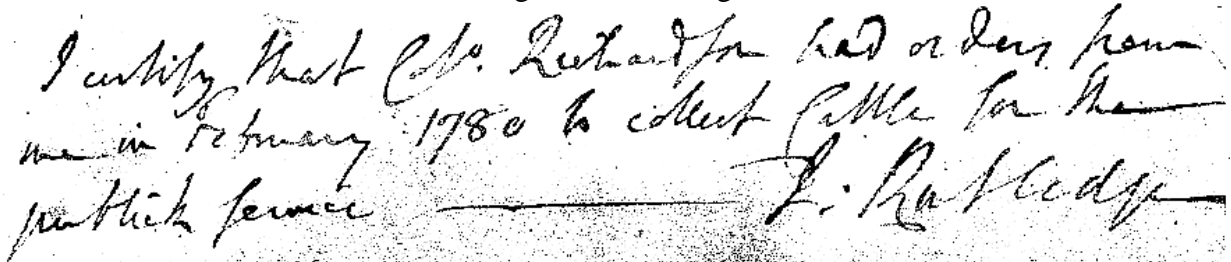 I certify that Colo. Richardson had orders from
me in February 1780 to collect Cattle for the
publick Service — J: Rutledge